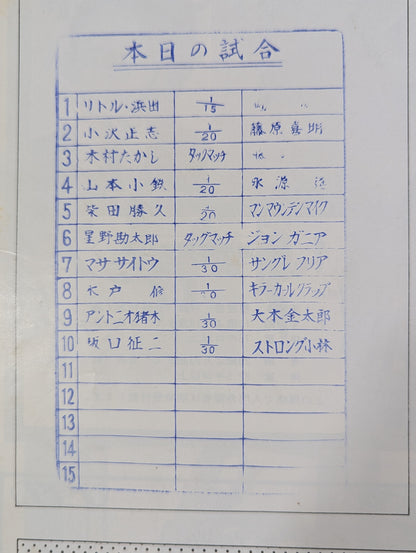 本日の試合
1 リトル・浜田 1/15
2 小沢正志 1/20 藤原喜明
3 木村たかし タッグマッチ
4 山本小鉄 1/20 永源遥
5 柴田勝久 /20 マンマウンテンマイク
6 星野勘太郎 タッグマッチ ジョン ガニア
7 マサ サイトウ 1/30 サングレ フリア
8 木戸 修 キラーカールクラップ
9 アントニオ猪木 1/30 大木金太郎
10 坂口征二 1/30 ストロング小林
11
12
13
14
15